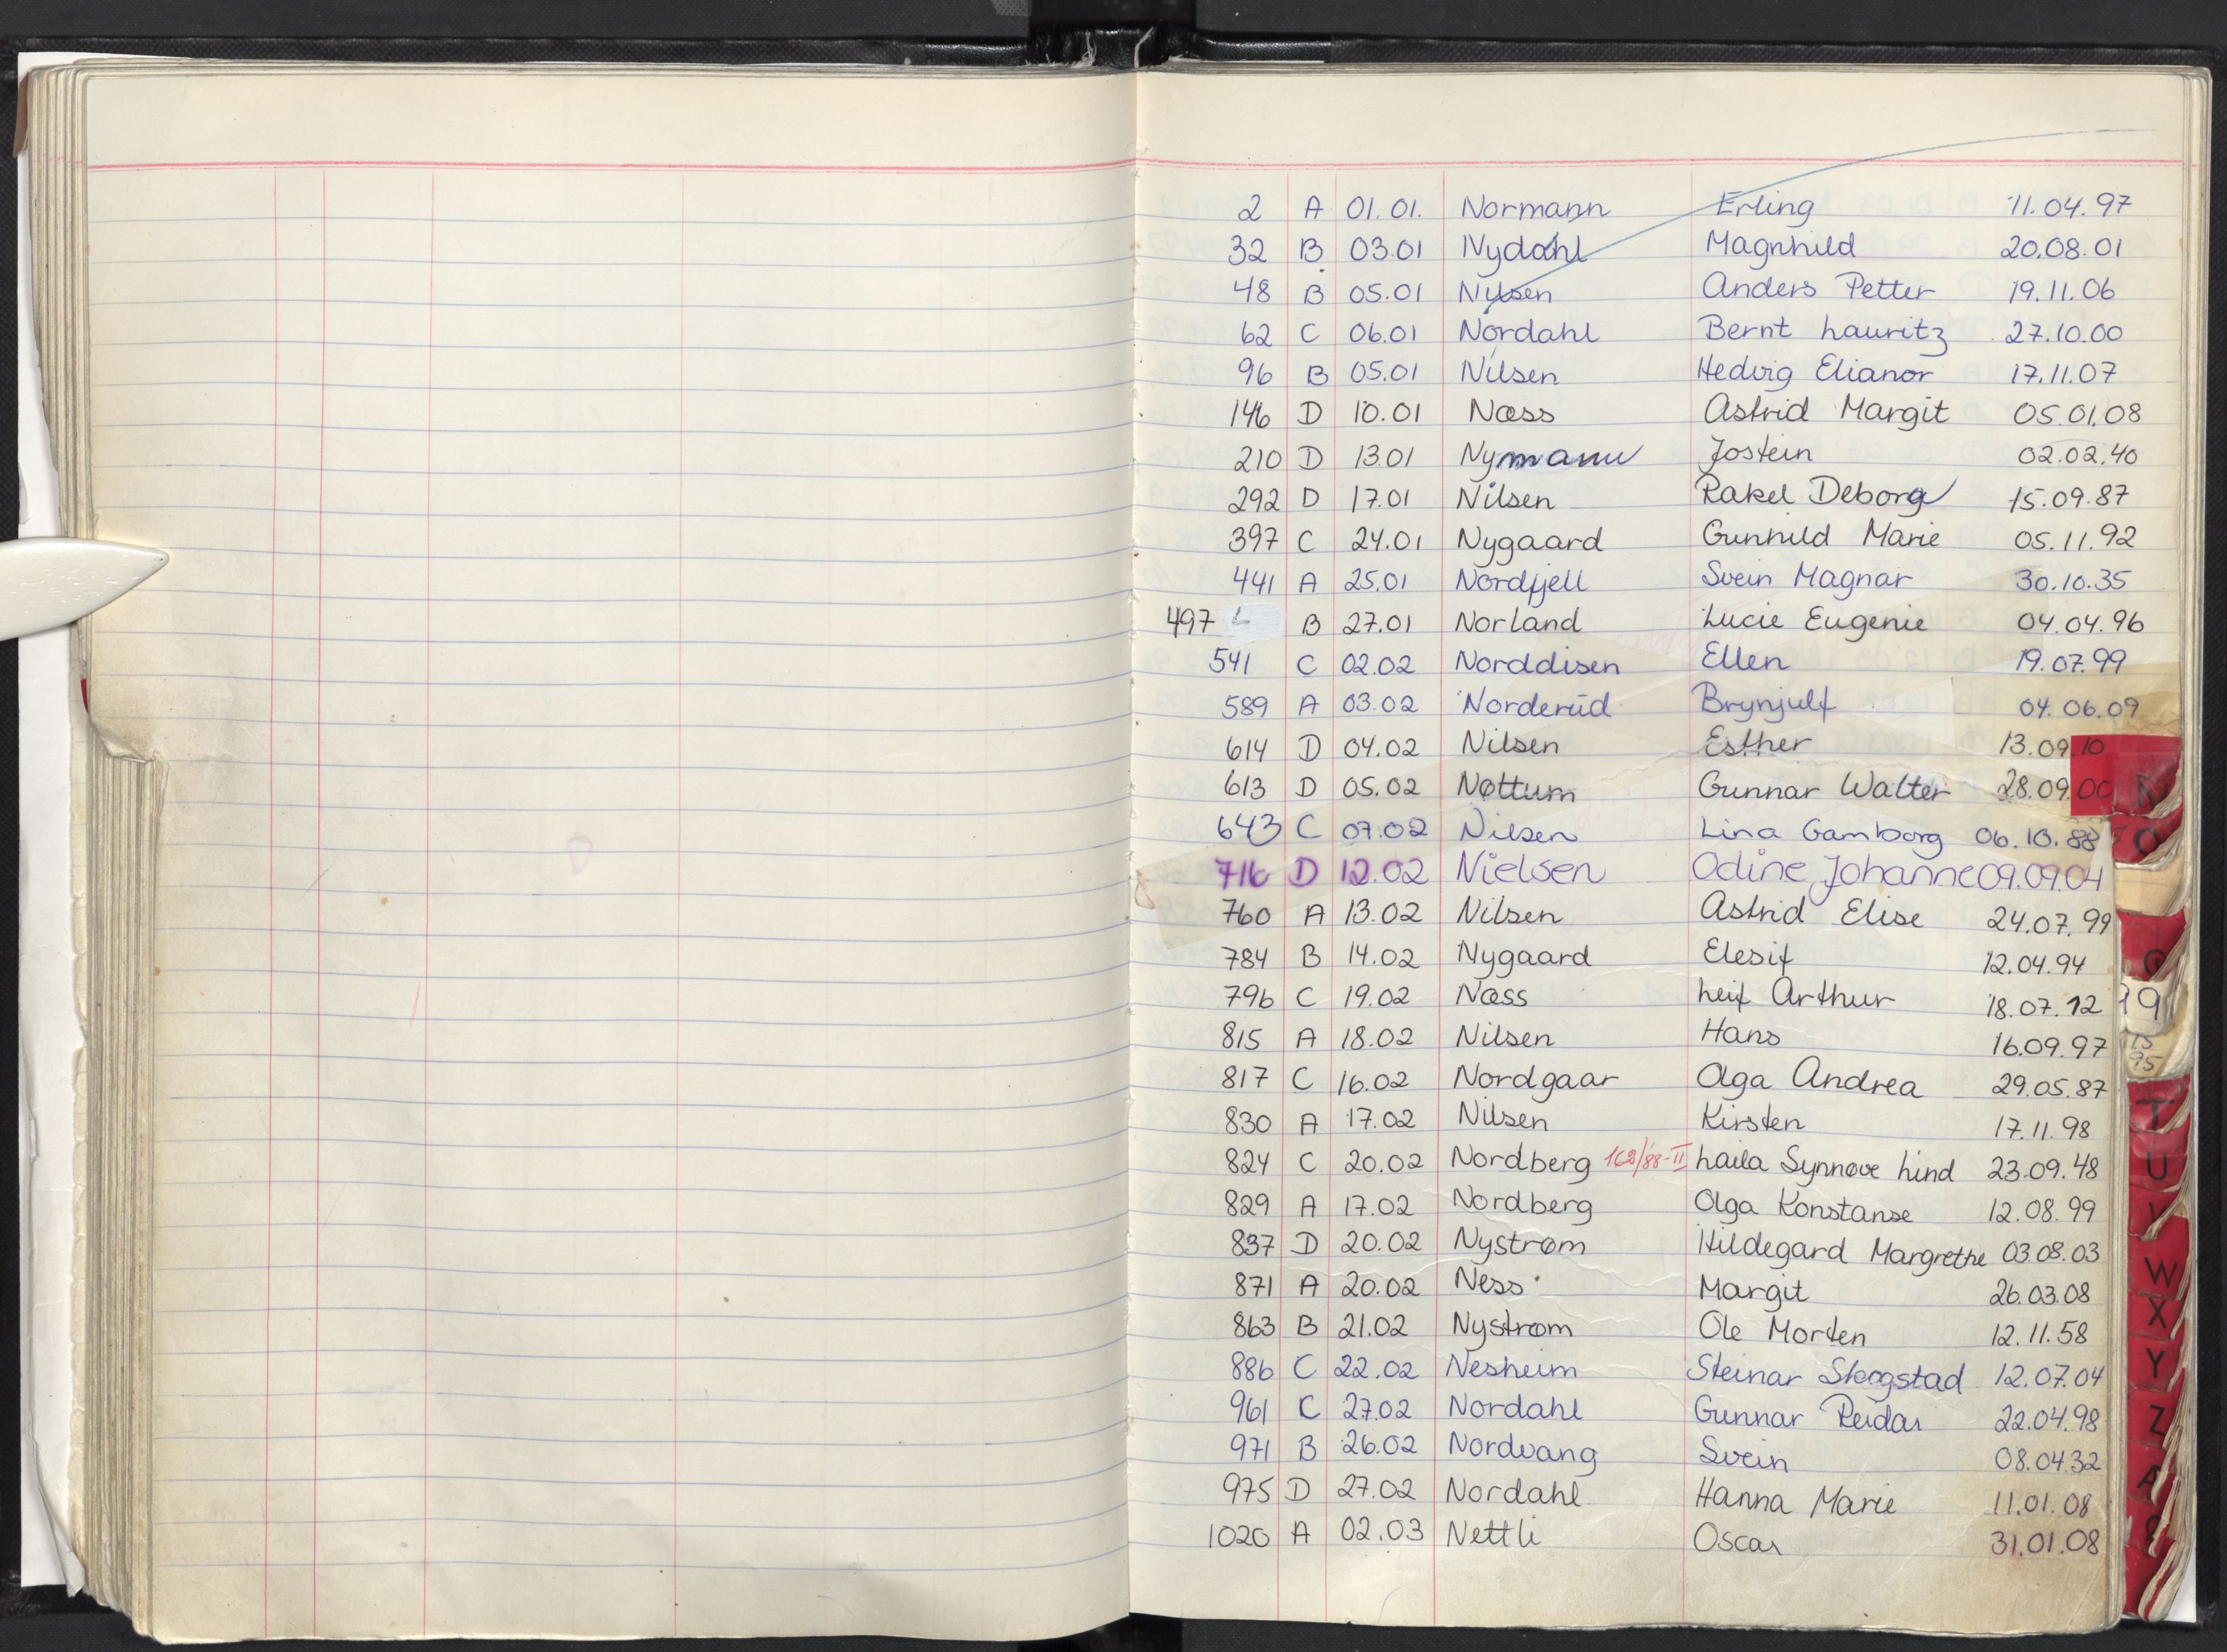 2 A 01.01. Normann Erling 11.04.97
32 B 03.01 Nydahl Magnhild 20.08.01
48 B 05.01 Nylsen Anders Petter 19.11.06
62 C 06.01 Nordahl Bernt Lauritz 27.10.00
96 B 05.01 Nilsen Hedvig Elianor 17.11.07
146 D 10.01 Næss Astrid Margit 05.01.08
210 D 13.01 Nymann Jostein 02.02.40
292 D 17.01 Nilsen Rakel Deborg 15.09.87
397 C 24.01 Nygaard Gunhild Marie 05.11.92
441 A 25.01 Nordfjell Svein Magnar 30.10.35
497 B 27.01 Norland Lucie Eugenie 04.04.96
541 C 02.02 Norddisen Ellen 19.07.99
589 A 03.02 Norderud Brynjulf 04.06.09
614 D 04.02 Nilsen Esther 13.09.10
613 D 05.02 Nøttum Gunnar Walter 28.09.00
643 C 07.02 Nilsen Lina Gamborg 06.10.88
716 D 12.02 Nielsen Odine Johanne 09.09.04
760 A 13.02 Nilsen Astrid Elise 24.07.99
784 B 14.02 Nygaard Elesif 12.04.94
796 C 19.02 Næss Leif Arthur 18.07.12
815 A 18.02 Nilsen Hans 16.09.97
817 C 16.02 Nordgaar Olga Andrea 29.05.87
830 A 17.02 Nilsen Kirsten 17.11.98
824 C 20.02 Nordberg 168/88-II Laila Synnøve Lind 23.09.48
829 A 17.02 Nordberg Olga Konstanse 12.08.99
837 D 20.02 Nystrøm Hildegard Margrethe 03.08.03
871 A 20.02 Ness Margit 26.03.08
863 B 21.02 Nystrøm Ole Morten 12.11.58
886 C 22.02 Nesheim Steinar Skogstad 12.07.04
961 C 27.02 Nordahl Gunnar Reidar 22.04.98
971 B 26.02 Nordvang Svein 08.04.32
975 D 27.02 Nordahl Hanna Marie 11.01.08
1020 A 02.03 Nettli Oscar 31.01.08
N
O
T
U
V
W
X
Y
Z